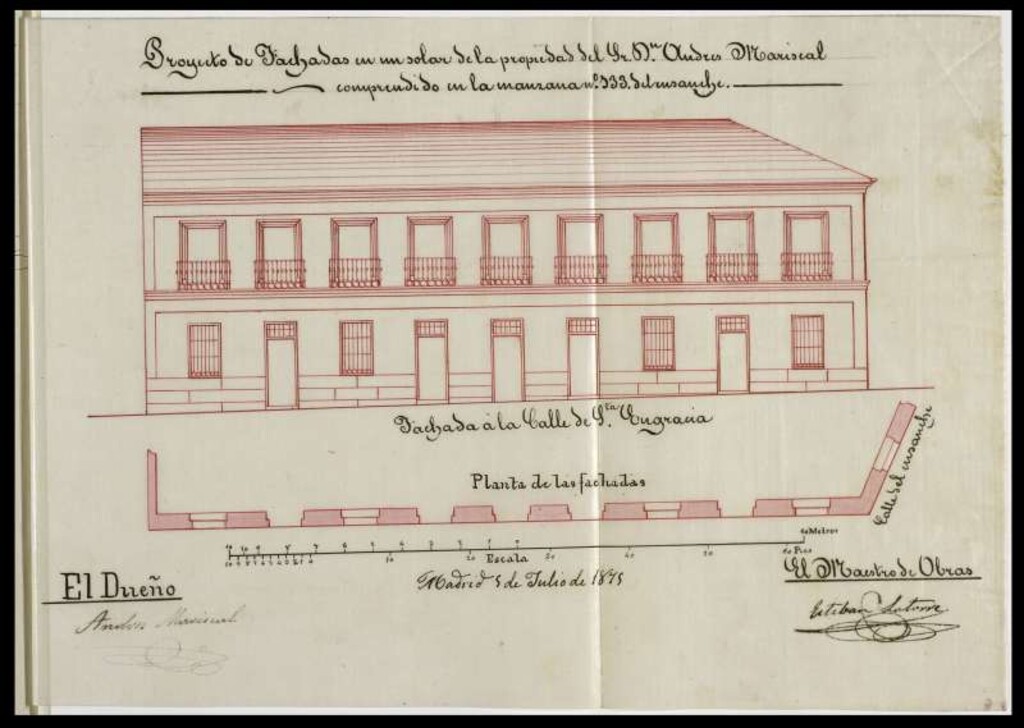 Proyecto de Fachadas en un solar de la propiedad del Sr. Dn. Andres Mariscal
comprendido en la manzana nº 133. del ensanche.
Fachada á la Calle de Sta. Engracia
Planta de las fachadas
Calle del ensanche
Metros
Escala
de Pies
Madrid 5 de Julio de 1875
El Dueño
El Maestro de Obras
Andres Mariscal
Esteban Latorre